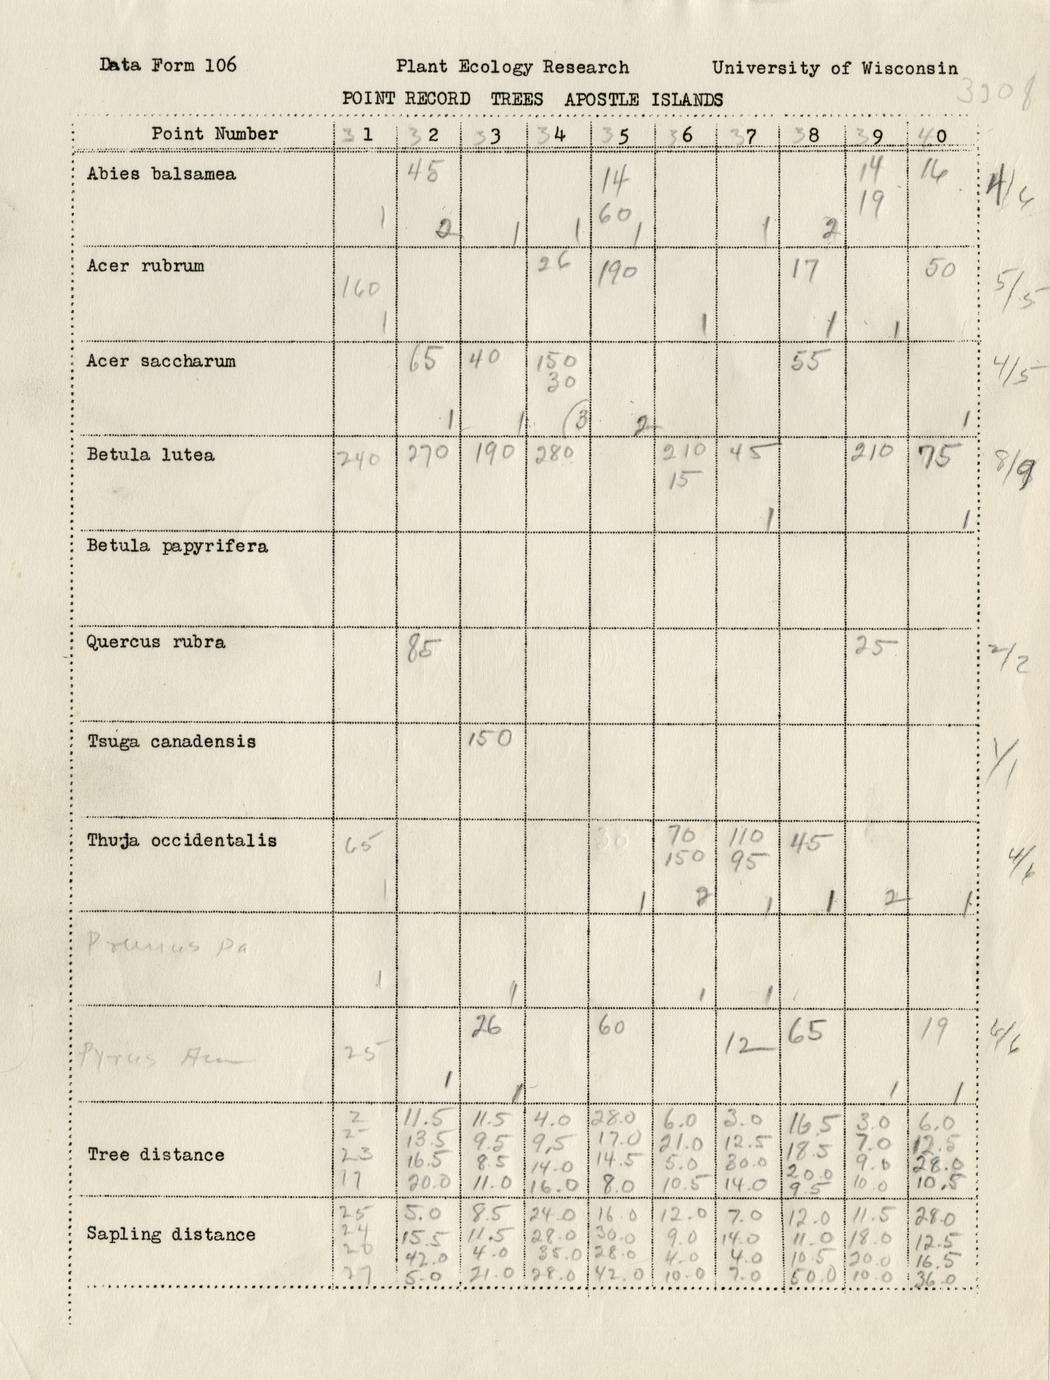 Data Form 106 Plant Ecology Research University of Wisconsin
POINT RECORD TREES APOSTLE ISLANDS
Point Number 31 32 33 34 35 36 37 38 39 40
Abies balsamea 45 14 14 16 4/6
60 19
1 2 1 1 1 1 2
Acer rubrum 26 190 17 50 5/5
160
1 1 1 1
Acer saccharum 65 40 150 55 4/5
30
1 1 (3 2 1
Betula lutea 240 270 190 280 210 45 210 75 8/9
15
1 1
Betula papyrifera
Quercus rubra 85 25 2/2
Tsuga canadensis 150 1/1
Thuja occidentalis 65 30 70 110 45 4/6
150 95
1 1 2 1 1 2 1
Prunus
1 1 1 1
26 60 12 65 19 6/6
Pyrus 25
1 1 1 1
2 11.5 11.5 4.0 28.0 6.0 3.0 16.5 3.0 6.0
13.5 9.5 9.5 17.0 21.0 12.5 18.5 7.0 12.5
Tree distance 23 16.5 8.5 14.0 14.5 5.0 30.0 20.0 9.0 28.0
17 20.0 11.0 16.0 8.0 10.5 14.0 9.5 10.0 10.5
25 5.0 8.5 24.0 16.0 12.0 7.0 12.0 11.5 28.0
Sapling distance 24 15.5 11.5 28.0 30.0 9.0 14.0 11.0 18.0 12.5
20 42.0 4.0 35.0 28.0 4.0 4.0 10.5 20.0 16.5
27 5.0 21.0 28.0 42.0 10.0 7.0 50.0 10.0 36.0